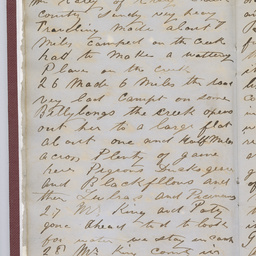 country Sandy very heavy
Traveling made about
Miles campect on the Creek
half to make a watting
Place on the creek
26 Made 6 Miles the road
very bad Campt on some
Billybongs the Creek opens
out her to a large flat
about one and half Miles
across Plenty of game
here Pigeons Ducks geese
and Blackfllons and
ther Lubras and
27 Mr King and Party
gone ahead to look
for water we stay in camp
28 Mr King comes in